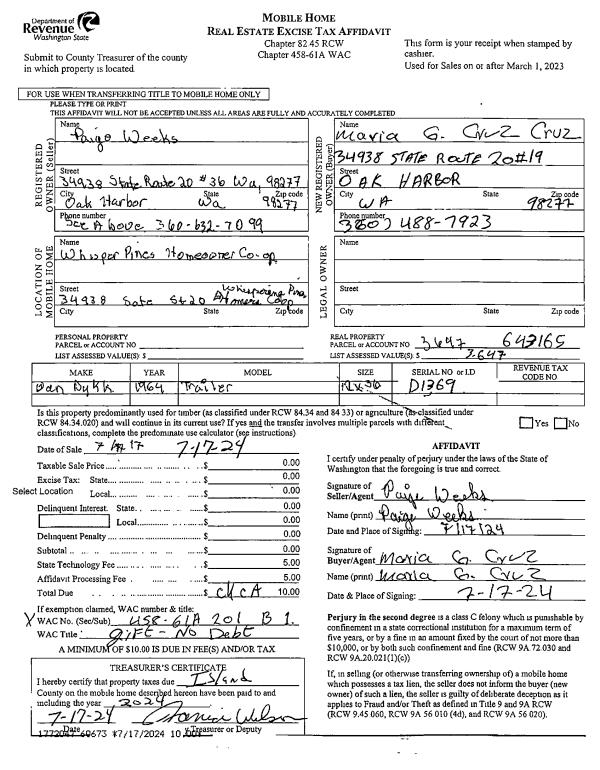 Department of
Revenue
Washington State
Submit to County Treasurer of the county
in which property is located.
MOBILE HOME
REAL ESTATE EXCISE TAX AFFIDAVIT
Chapter 82.45 RCW
Chapter 458-61A WAC
This form is your receipt when stamped by
cashier.
Used for Sales on or after March 1, 2023
FOR USE WHEN TRANSFERRING TITLE TO MOBILE HOME ONLY
PLEASE TYPE OR PRINT
THIS AFFIDAVIT WILL NOT BE ACCEPTED UNLESS ALL AREAS ARE FULLY AND ACCURATELY COMPLETED
REGISTERED OWNER (Seller)
Name
Paige Weeks
Street
34938 State Route 20 #36 Wa, 98277
City State Zip code
Oak Harbor Wa 98277
Phone number
See Above 360-632-7099
NEW REGISTERED OWNER (Buyer)
Name
Maria G. Cruz Cruz
34938 STATE ROUTE 20#19
Street
OAK HARBOR
City State Zip code
WA 98277
Phone number
360) 488-7923
LOCATION OF MOBILE HOME
Name
Whisper Pines Homeowner Co-op
Street
34938 Sate St20
City State Zip code
LEGAL OWNER
Name
Street
City State Zip code
PERSONAL PROPERTY
PARCEL or ACCOUNT NO
LIST ASSESSED VALUE(S) $
REAL PROPERTY
PARCEL or ACCOUNT NO 3647 643165
LIST ASSESSED VALUE(S) $ 3,647
MAKE YEAR MODEL SIZE SERIAL NO or I.D REVENUE TAX CODE NO
1964 Trailer D1369
Is this property predominantly used for timber (as classified under RCW 84.34 and 84 33) or agriculture (as classified under
RCW 84.34.020) and will continue in its current use? If yes and the transfer involves multiple parcels with different
classifications, complete the predominate use calculator (see instructions)
Yes No
Date of Sale 7-17-24
Taxable Sale Price $ 0.00
Excise Tax: State $ 0.00
Select Location Local $ 0.00
Delinquent Interest. State $ 0.00
Local $ 0.00
Delinquent Penalty $ 0.00
Subtotal $ 0.00
State Technology Fee $ 5.00
Affidavit Processing Fee $ 5.00
Total Due $ 10.00
If exemption claimed, WAC number & title:
X WAC No. (Sec/Sub) 458-61A 201 B 1.
WAC Title GIFT - No Debt
A MINIMUM OF $10.00 IS DUE IN FEE(S) AND/OR TAX
TREASURER'S CERTIFICATE
I hereby certify that property taxes due Island
County on the mobile home described hereon have been paid to and
including the year 2024
7-17-24
Date Treasurer or Deputy
AFFIDAVIT
I certify under penalty of perjury under the laws of the State of
Washington that the foregoing is true and correct.
Signature of
Seller/Agent Paige Weeks
Name (print) Paige Weeks
Date and Place of Signing: 7/17/24
Signature of
Buyer/Agent Maria G. Cruz
Name (print) Maria G. Cruz
Date & Place of Signing: 7-17-24
Perjury in the second degree is a class C felony which is punishable by
confinement in a state correctional institution for a maximum term of
five years, or by a fine in an amount fixed by the court of not more than
$10,000, or by both such confinement and fine (RCW 9A.72.030 and
RCW 9A.20.021(1)(c))
If, in selling (or otherwise transferring ownership of) a mobile home
which possesses a tax lien, the seller does not inform the buyer (new
owner) of such a lien, the seller is guilty of deliberate deception as it
applies to Fraud and/or Theft as defined in Title 9 and 9A RCW
(RCW 9.45 060, RCW 9A 56 010 (4d), and RCW 9A 56 020).
60673 *7/17/2024